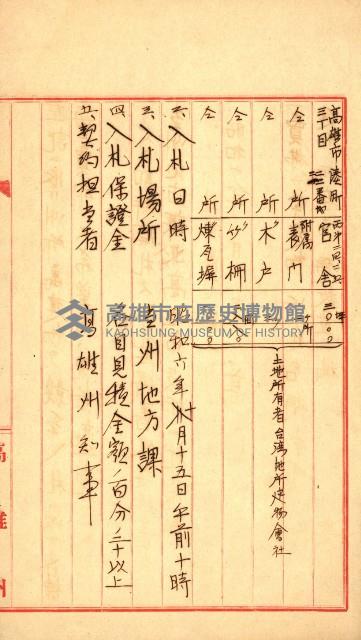 高雄市湊町
三丁目
番地
官舎
坪
三〇〇
仝所
附属
表門
ヶ所
仝所
木戸
仝所
竹柵
仝所
煉瓦塀
土地所有者台湾地所建物會社
二、入札日時 昭和六年十月十五日午前十時
三、入札場所 當州地方課
四、入札保證金 各自見積金額ノ百分ノ二十以上
五、契約担当者 高雄州知事
高雄市立歷史博物館
KAOHSIUNG MUSEUM OF HISTORY
高雄州